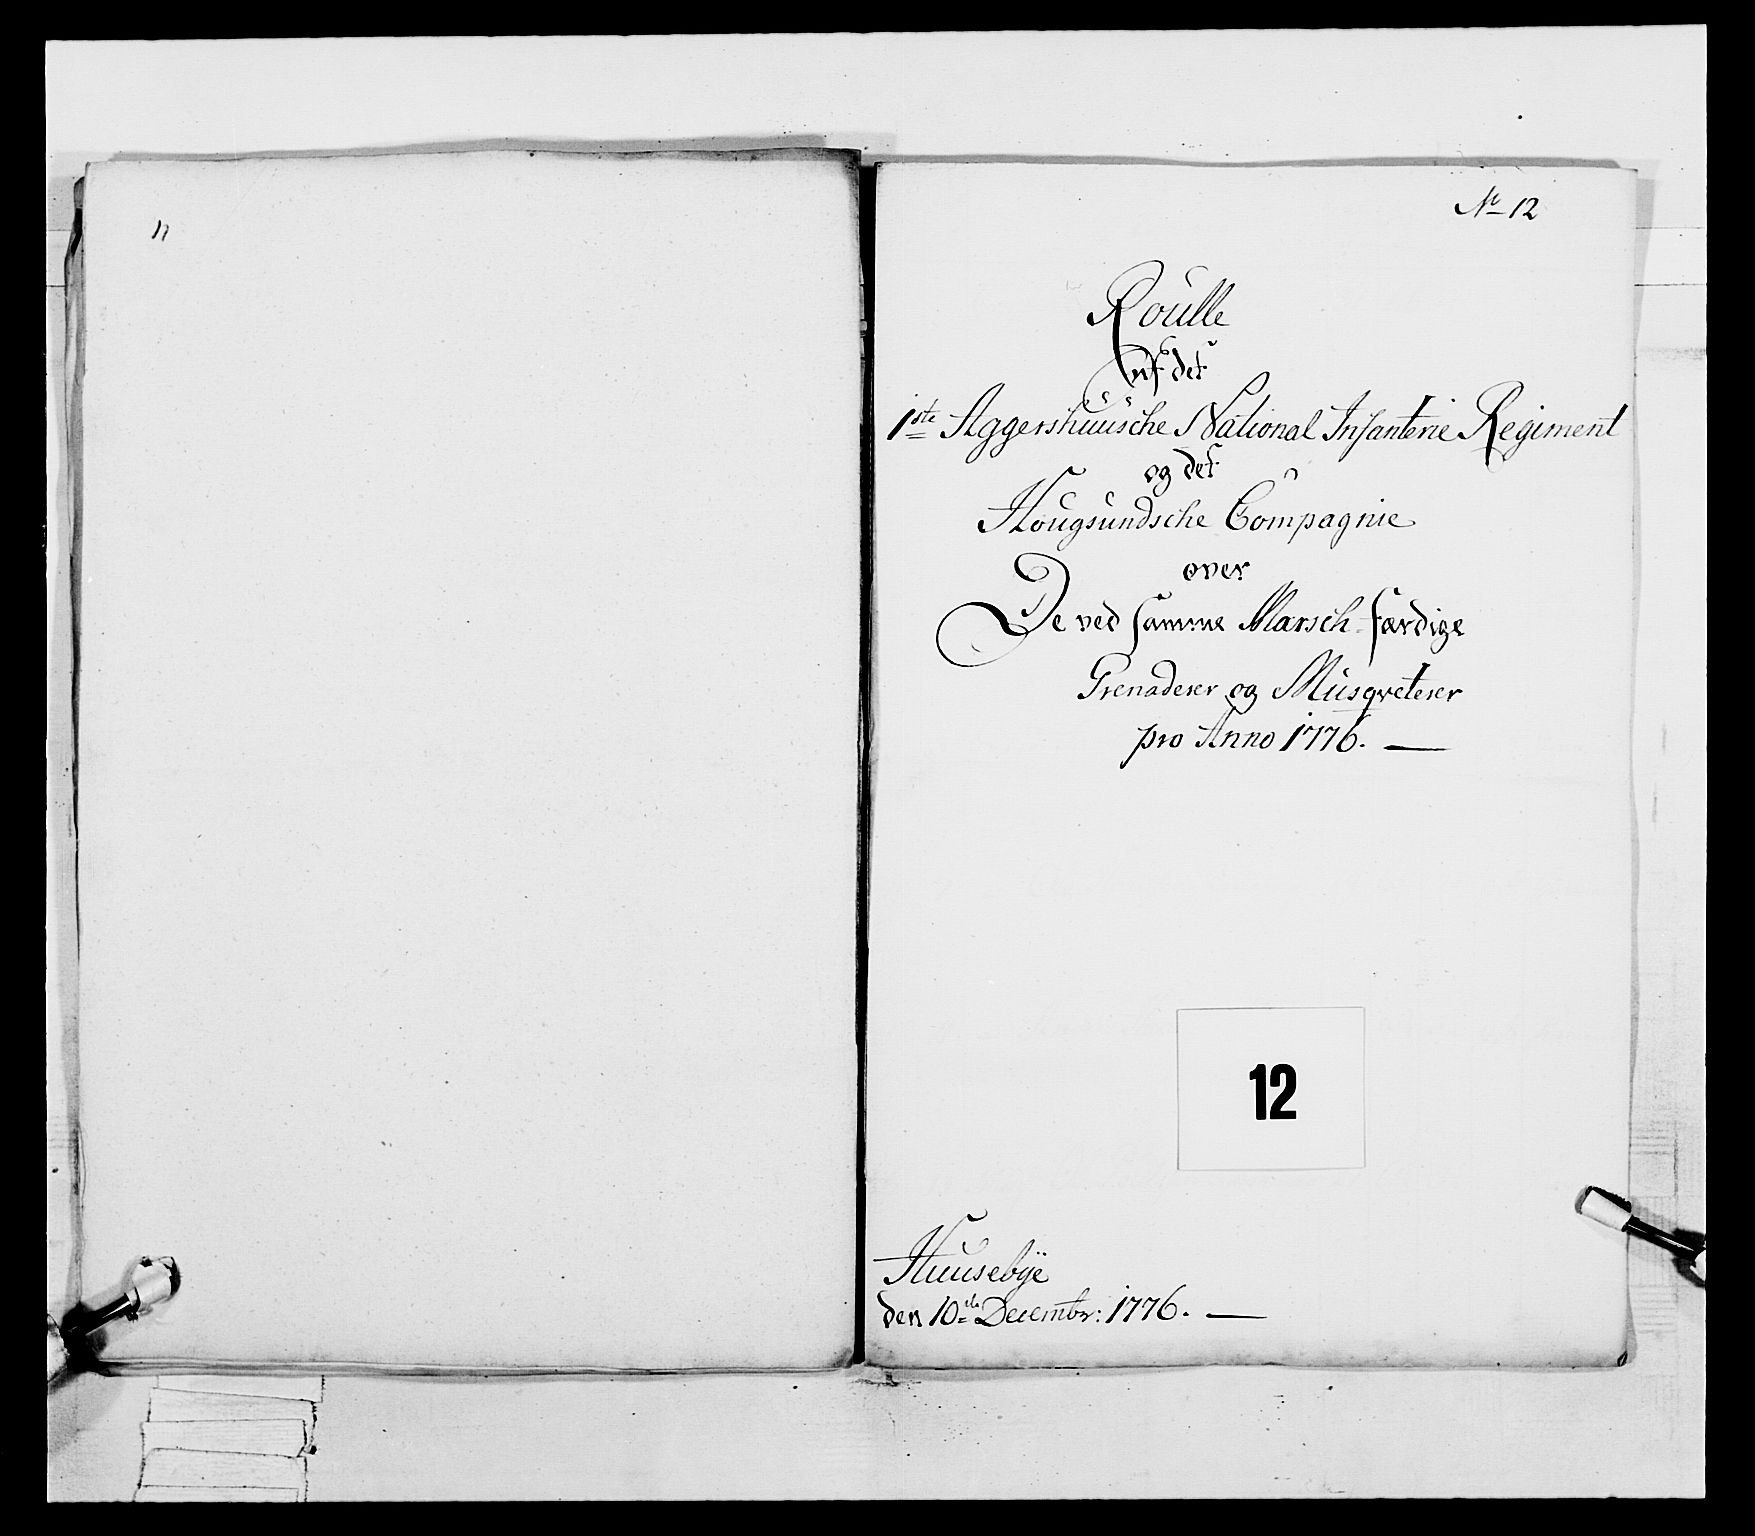 11
No 12
Roulle
af det
1ste Aggershuusche National Infanterie Regiment
og det
Hougsundsche Compagnie
over
De ved samme Marsch-færdige
Grenaderer og Musqveterer
pro Anno 1776.
12
Huusebÿe
den 10de Decembr: 1776.